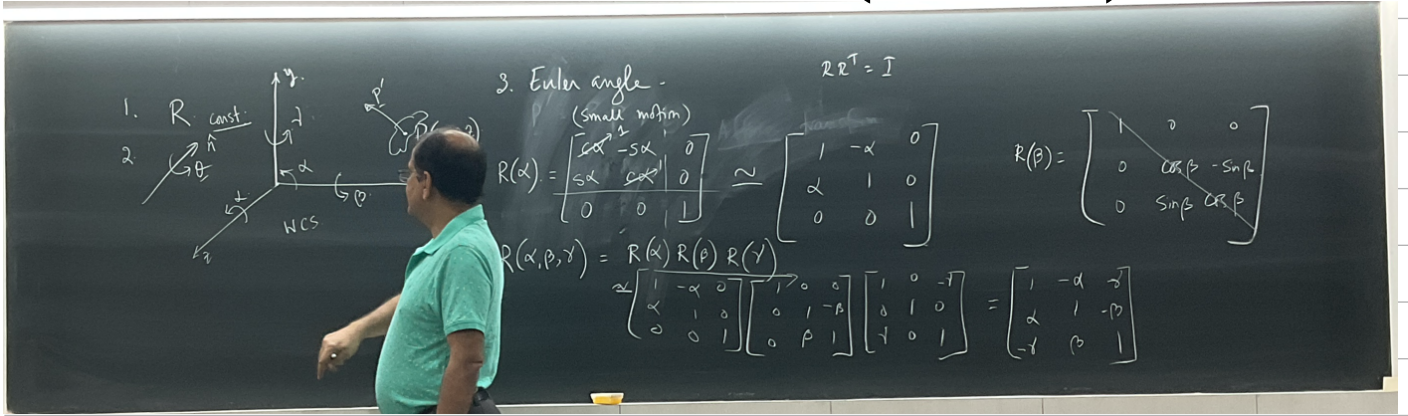 1. R const.
2. n̂
θ
y.
γ
α
β
α
z
WCS
P'
3. Euler angle -
P' (small motion)
R(α) = [ cα 1 -sα 0
sα cα 1 0
0 0 1 ] ≃ [ 1 -α 0
α 1 0
0 0 1 ]
RRᵀ = I
R(β) = [ 1 0 0
0 cosβ -sinβ
0 sinβ cosβ ]
R(α,β,γ) = R(α) R(β) R(γ)
≃ [ 1 -α 0
α 1 0
0 0 1 ] [ 1 0 0
0 1 -β
0 β 1 ] [ 1 0 -γ
0 1 0
γ 0 1 ] = [ 1 -α γ
α 1 -β
-γ β 1 ]